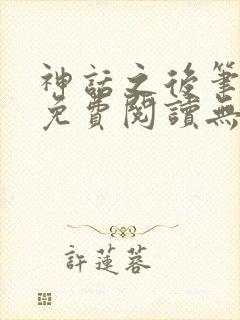 神話之後筆
免費閱讀無
許蓮蓉